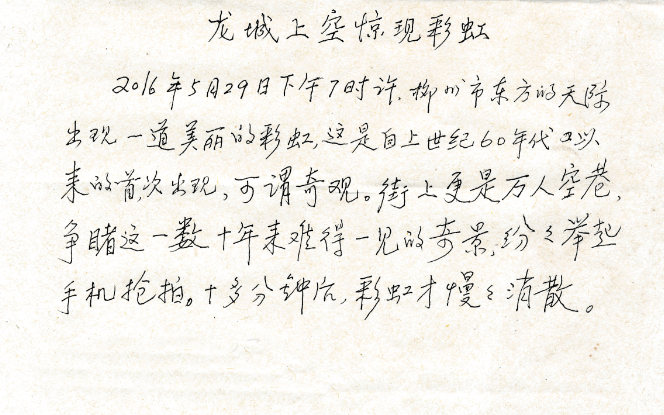 龙城上空惊现彩虹
2016年5月29日下午7时许,柳州市东方的天际
出现一道美丽的彩虹,这是自上世纪60年代以
来的首次出现,可谓奇观。街上更是万人空巷,
争睹这一数十年来难得一见的奇景,纷々举起
手机抢拍。十多分钟后,彩虹才慢々消散。